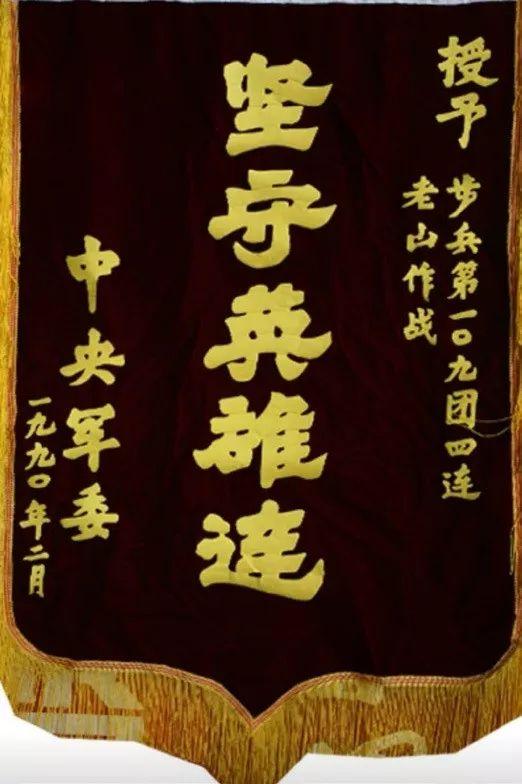 授予
步兵第一〇九团四连
老山作战
坚守英雄连
中央军委
一九九〇年二月